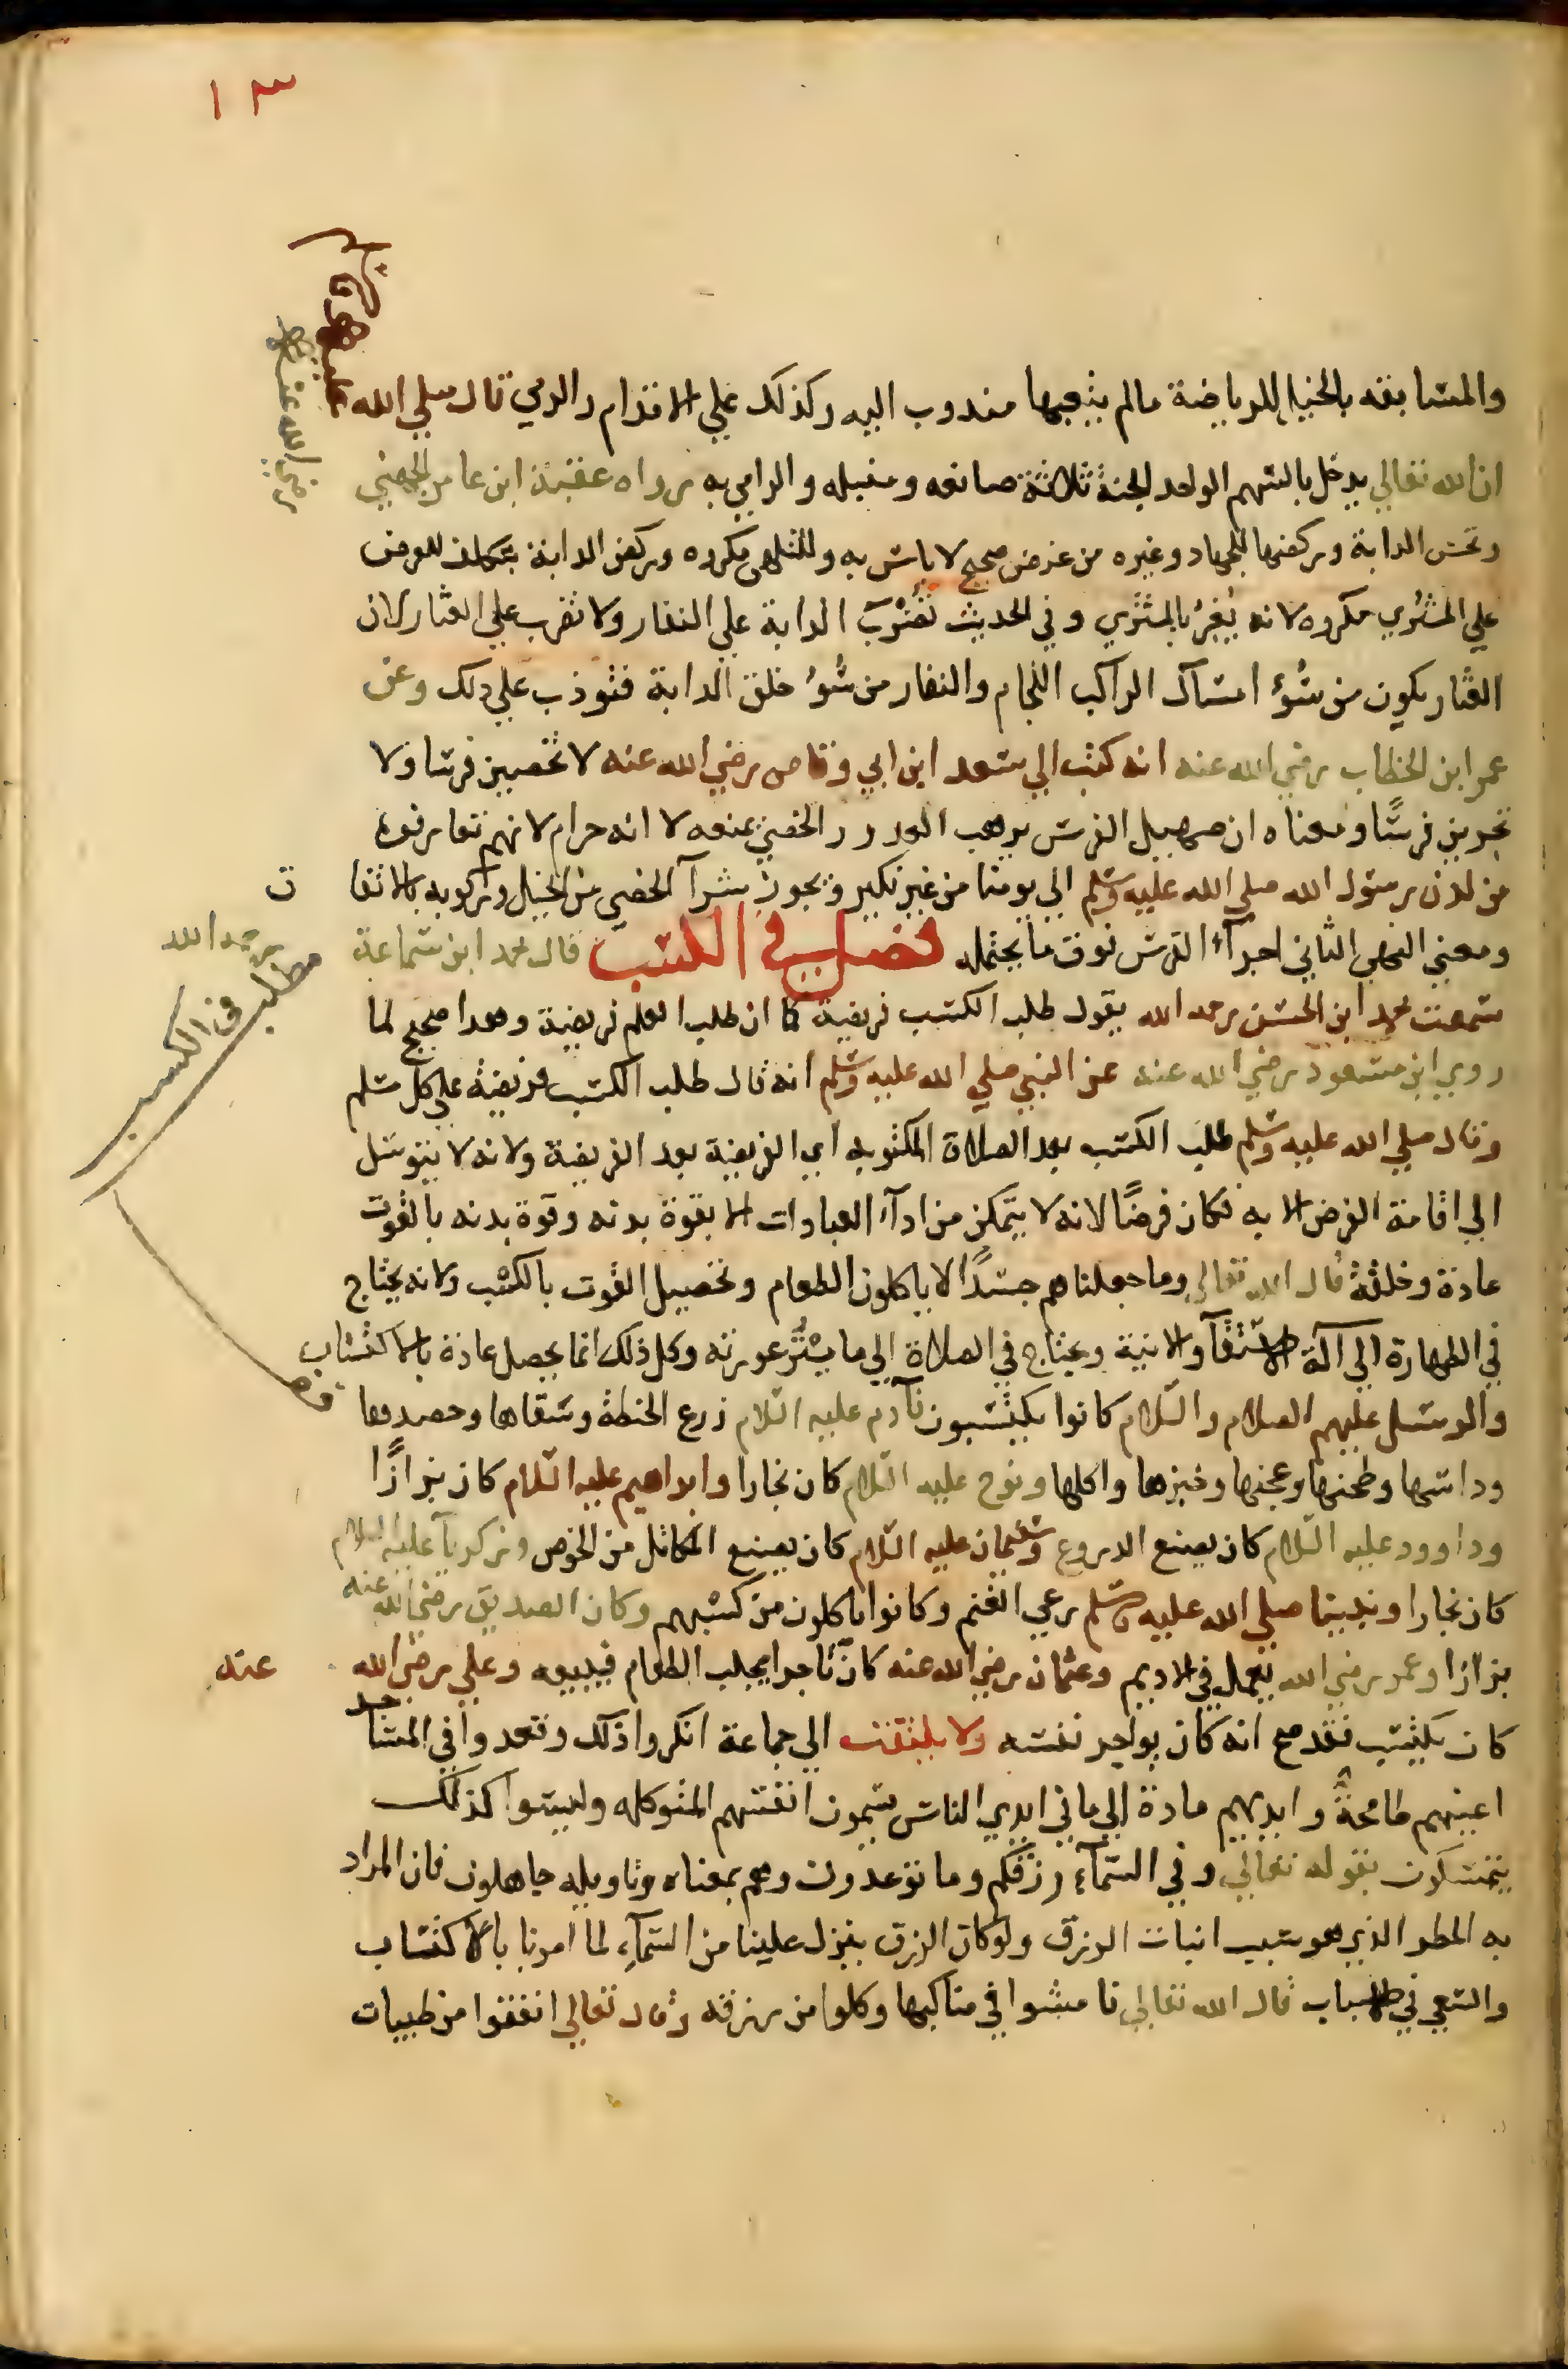 ١٣
والمسابقه بالخيل للرياضة مالم يتعبها مندوب اليه وكذلك علي الاقدام والرمي قال صلي الله
عليه وسلم
ان الله تعالي يدخل بالسهم الواحد الجنة ثلاثة صانعه ومنبله والرامي به رواه عقبة ابن عامر الجهني
رضي الله عنه
ونخس الدابة وركضها للجهاد وغيره من غرض صحيح لا باس به وللتلهي مكروه وركض الدابة بتكلف للعرض
علي المشتري مكروه لانه يغر بالمشتري وفي الحديث تضرب الدابة علي النفار ولا تضرب علي العثار لان
العثار يكون من سوء امساك الراكب اللجام والنفار من سوء خلق الدابة فتوذب علي ذلك وعن
عمر ابن الخطاب رضي الله عنه انه كتب الي سعد ابن ابي وقاص رضي الله عنه لا تخصين فرسا ولا
تجرين فرسًا ومعناه ان صهيل الفرس يرهب العدو والخصي يمنعه لا انه حرام لانهم تعارفوه
من لدن رسول الله صلي الله عليه وسلم الي يومنا من غير نكير ويجوز شرآ الخصي من الخيل وركوبه بالاتفا ق
ومعني النهي الثاني اجرآء الفرس فوق ما يحتمله فصل في الكسب قال محمد ابن سماعة رحمه الله
مطلب في الكسب
سمعت محمد ابن الحسن رحمه الله يقول طلب الكسب فريضة كما ان طلب العلم فريضة وهذا صحيح لما
روي ابن مسعود رضي الله عنه عن النبي صلي الله عليه وسلم انه قال طلب الكسب فريضة علي كل مسلم
وقال صلي الله عليه وسلم طلب الكسب بعد الصلاة المكتوبه اي الفريضة بعد الفريضة ولانه لا يتوسل
الي اقامة الفرض الا به فكان فرضًا لانه لا يتمكن من ادآء العبادات الا بقوة بدنه وقوة بدنه بالقوت
عادة وخلقة قال الله تعالي وما جعلناهم جسدًا لا ياكلون الطعام وتحصيل القوت بالكسب ولانه يحتاج
في الطهارة الي آلة الاستقآ والانية ويحتاج في الصلاة الي ما يستر عورته وكل ذلك انما يحصل عادة بالاكتساب
والرسل عليهم الصلام والسلام كانوا يكتسبون فآدم عليه السلام زرع الحنطة وسقاها وحصدها
وداسها وطحنها وعجنها وخبزها واكلها ونوح عليه السلام كان نجارا وابراهيم عليه السلام كان بزازًا
وداوود عليه السلام كان يصنع الدروع وسليمان عليه السلام كان يصنع المكاتل من الخوص وزكريآ عليه السلام
كان نجارا ونبينا صلي الله عليه وسلم رعي الغنم وكانوا ياكلون من كسبهم وكان الصديق رضي الله عنه
بزازا وعمر رضي الله يعمل في الاديم وعثمان رضي الله عنه كان تاجرا يجلب الطعام فيبيعه وعلي رضي الله عنه
كان يكتسب فقد صح انه كان يواجر نفسه ولا يلتفت الي جماعة انكروا ذلك وقعدوا في المساجد
اعينهم طامحةً وايديهم مادة الي ما في ايدي الناس يسمون انفسهم المتوكله وليسوا كذلك
يتمسكون بقوله تعالي وفي السمآء رزقكم وما توعدون وهم بمعناه وتاويله جاهلون فان المراد
به المطر الذي هو سبب انبات الرزق ولو كان الرزق ينزل علينا من السمآء لما امرنا بالاكتساب
والسعي في الاسباب قال الله تعالي فامشوا في مناكبها وكلوا من رزقه وقال تعالي انفقوا من طيبات